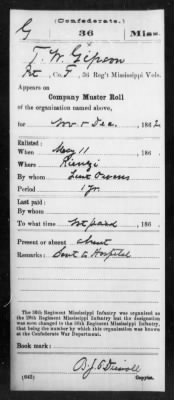 (Confederate.)
G 36 Miss.
T. W. Gipson
Pvt, Co. F, 36 Reg't Mississippi Vols.
Appears on
Company Muster Roll
of the organization named above,
for Nov & Dec, 1862
Enlisted:
When May 11, 186
Where Rienzi
By whom Lieut Owens
Period 1 yr.
Last paid:
By whom
To what time not paid, 186 .
Present or absent Absent
Remarks: Sent to Hospital
The 36th Regiment Mississippi Infantry was organized as
the 39th Regiment Mississippi Infantry but the designation
was soon changed to the 36th Regiment Mississippi Infantry,
that being the number by which this organization was known at
the Confederate War Department.
Book mark:
(642) Copyist.